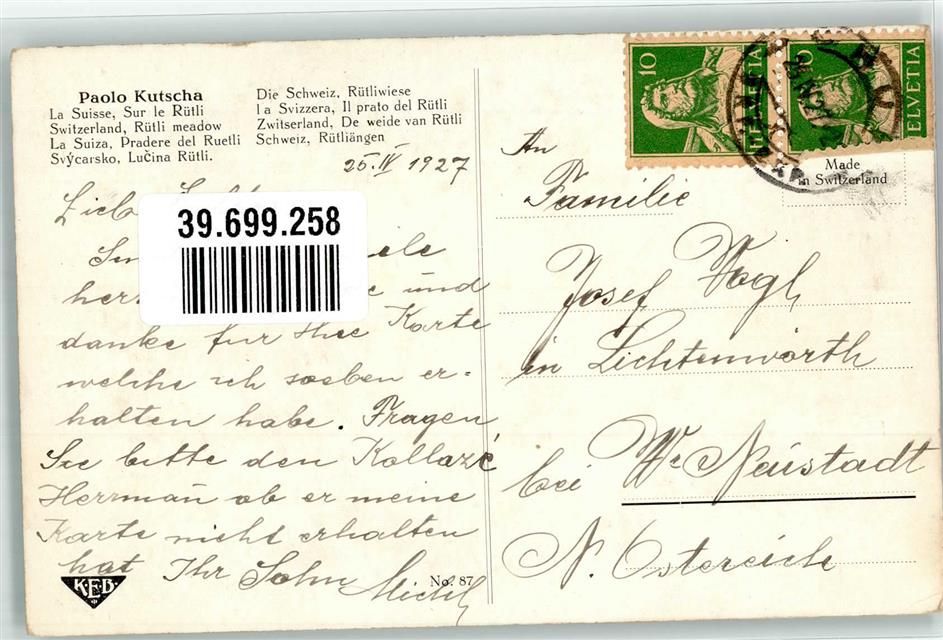 Paolo Kutscha
La Suisse, Sur le Rütli
Switzerland, Rütli meadow
La Suiza, Pradere del Ruetli
Svýcarsko, Lučina Rütli.
Die Schweiz, Rütliwiese
la Svizzera, Il prato del Rütli
Zwitserland, De weide van Rütli
Schweiz, Rütliängen
25. IV 1927
39.699.258
und
danke für Ihre Karte
welche ich soeben er-
halten habe. Fragen
Sie bitte den Kollazé
Herrman ob er meine
Karte nicht erhalten
hat Ihr Sohn Michl
K.E.B.
No. 87
10 HELVETIA
10 HELVETIA
Made
in Switzerland
An
Familie
Josef Vogl
in Lichtenwörth
bei Wr Neustadt
N. Östereich